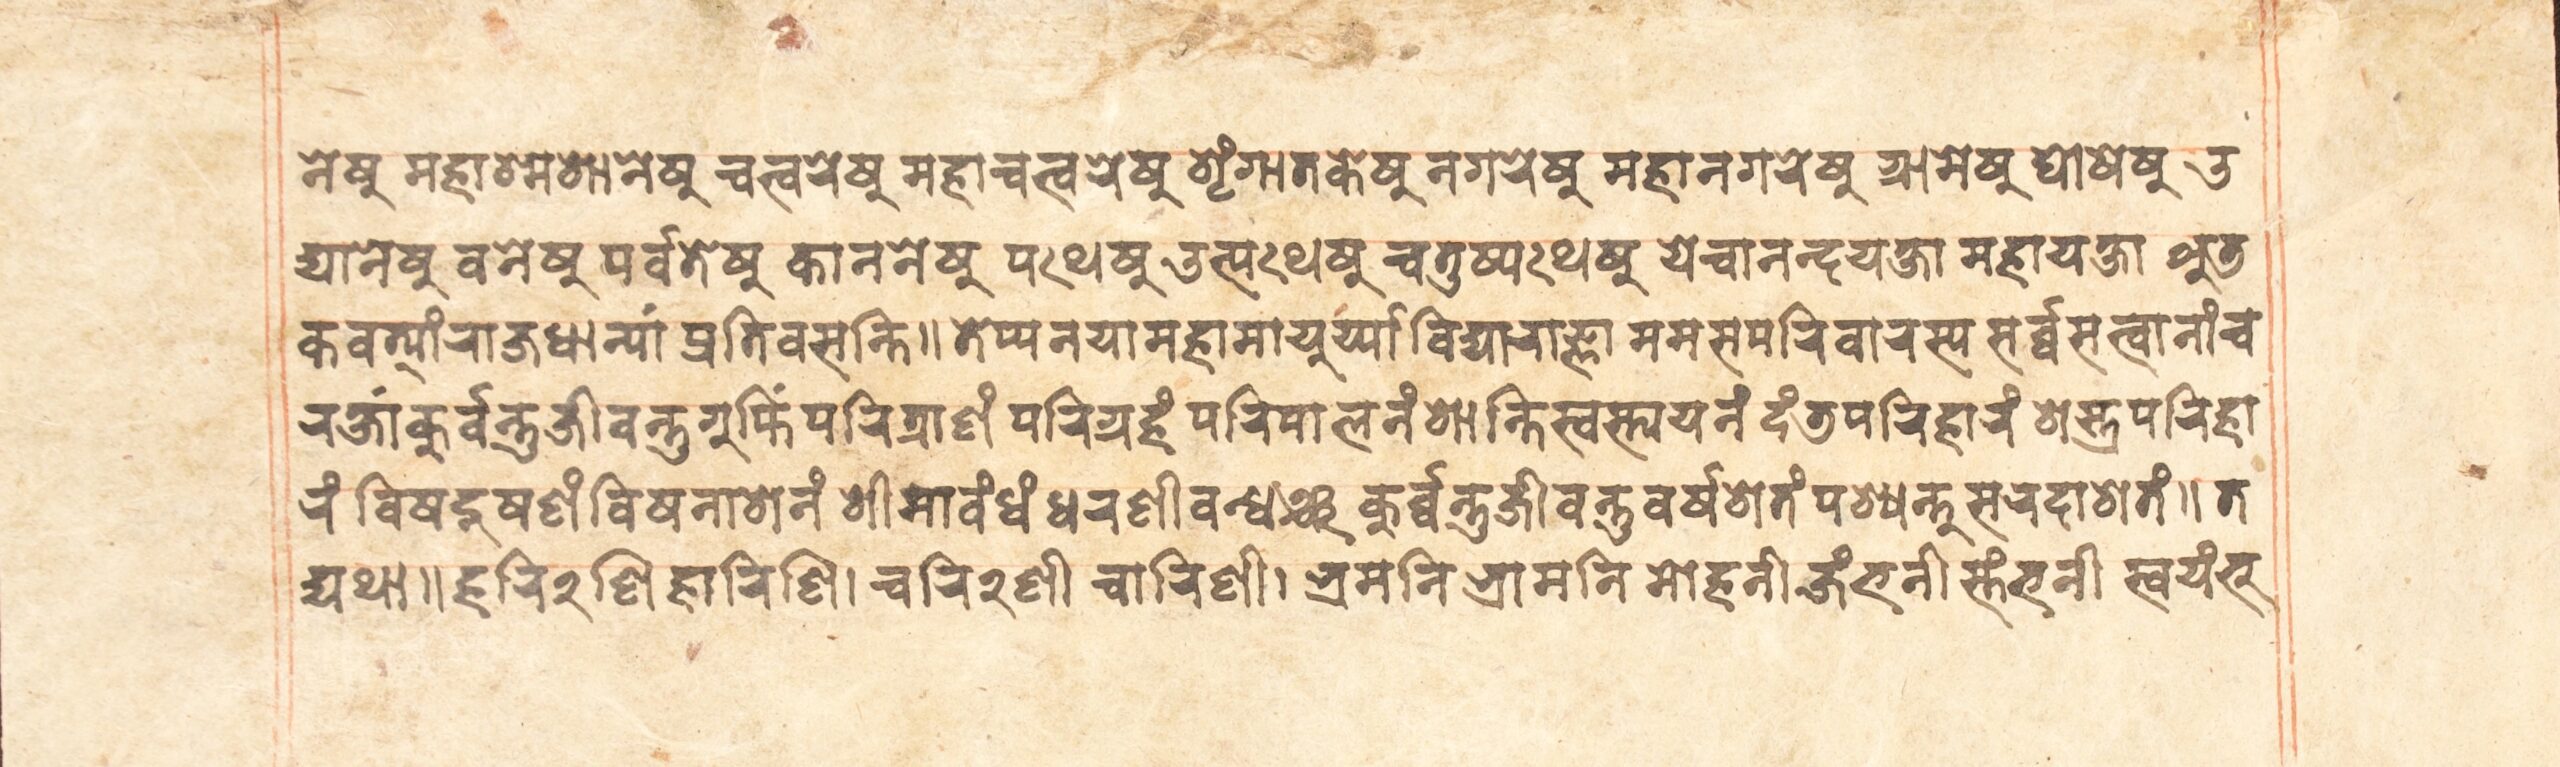 नेषु महाश्मशानेषु चत्वरेषु महाचत्वरेषु शृंगातकेषु नगरेषु महानगरेषु ग्रामेषु घोषेषु उ
द्यानेषु वनेषु पर्वतेषु काननेषु पथेषु उत्पथेषु चतुष्पथेषु येचानन्दयक्षा महायक्षा
कवत्यां राजधान्यां प्रतिवसन्ति॥ तेप्यनयामहामायुर्य्या विद्याराज्ञा ममसपरिवारस्य सर्व्वसत्वानांच
रक्षां कुर्वन्तु जीवन्तु गुप्तिं परित्राणं परिग्रहं परिपालनं शान्तिस्वस्त्ययनं दंडपरिहारं शस्त्रपरिहा
रं विषदूषणं विषनाशनं शीमावंधं धरणीवन्धञ्च कुर्व्वन्तु जीवन्तु वर्षशतं पश्यन्तु सरदाशतं॥ त
द्यथा॥ हरि२णि हारिणि। चरि२णी चारिणी। भ्रमनि भ्रामनि मोहनी जंभनी स्तंभनी स्वयंभू